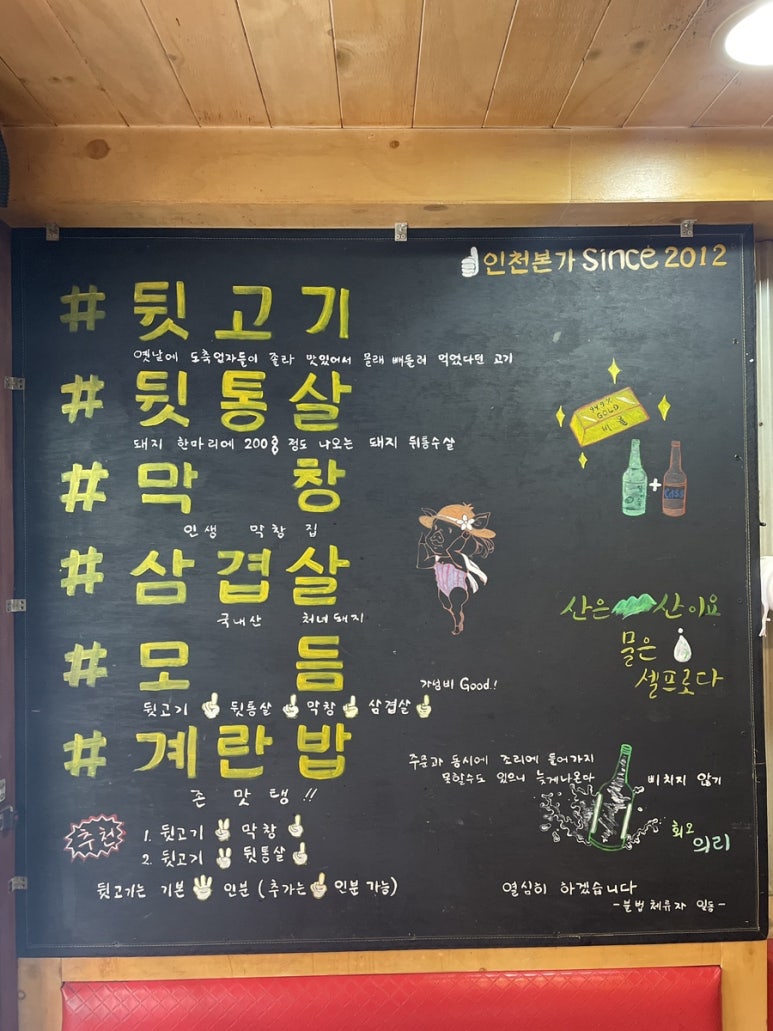 인천본가 Since 2012
# 뒷고기
옛날에 도축업자들이 졸라 맛있어서 몰래 빼돌려 먹었다던 고기
# 뒷통살
돼지 한마리에 200g 정도 나오는 돼지 뒤통수살
# 막창
인생 막창 집
# 삼겹살
국내산 처녀돼지
# 모듬
가성비 Good!
뒷고기 뒷통살 막창 삼겹살
# 계란밥
존맛탱!!
추천
1. 뒷고기 막창
2. 뒷고기 뒷통살
뒷고기는 기본 인분 (추가는 인분 가능)
GOLD
산은 산이요
물은
셀프로다
주문과 동시에 조리에 들어가지
못할수도 있으니 늦게나온다
삐치지 않기
의리
열심히 하겠습니다
-불법체류자 일동-